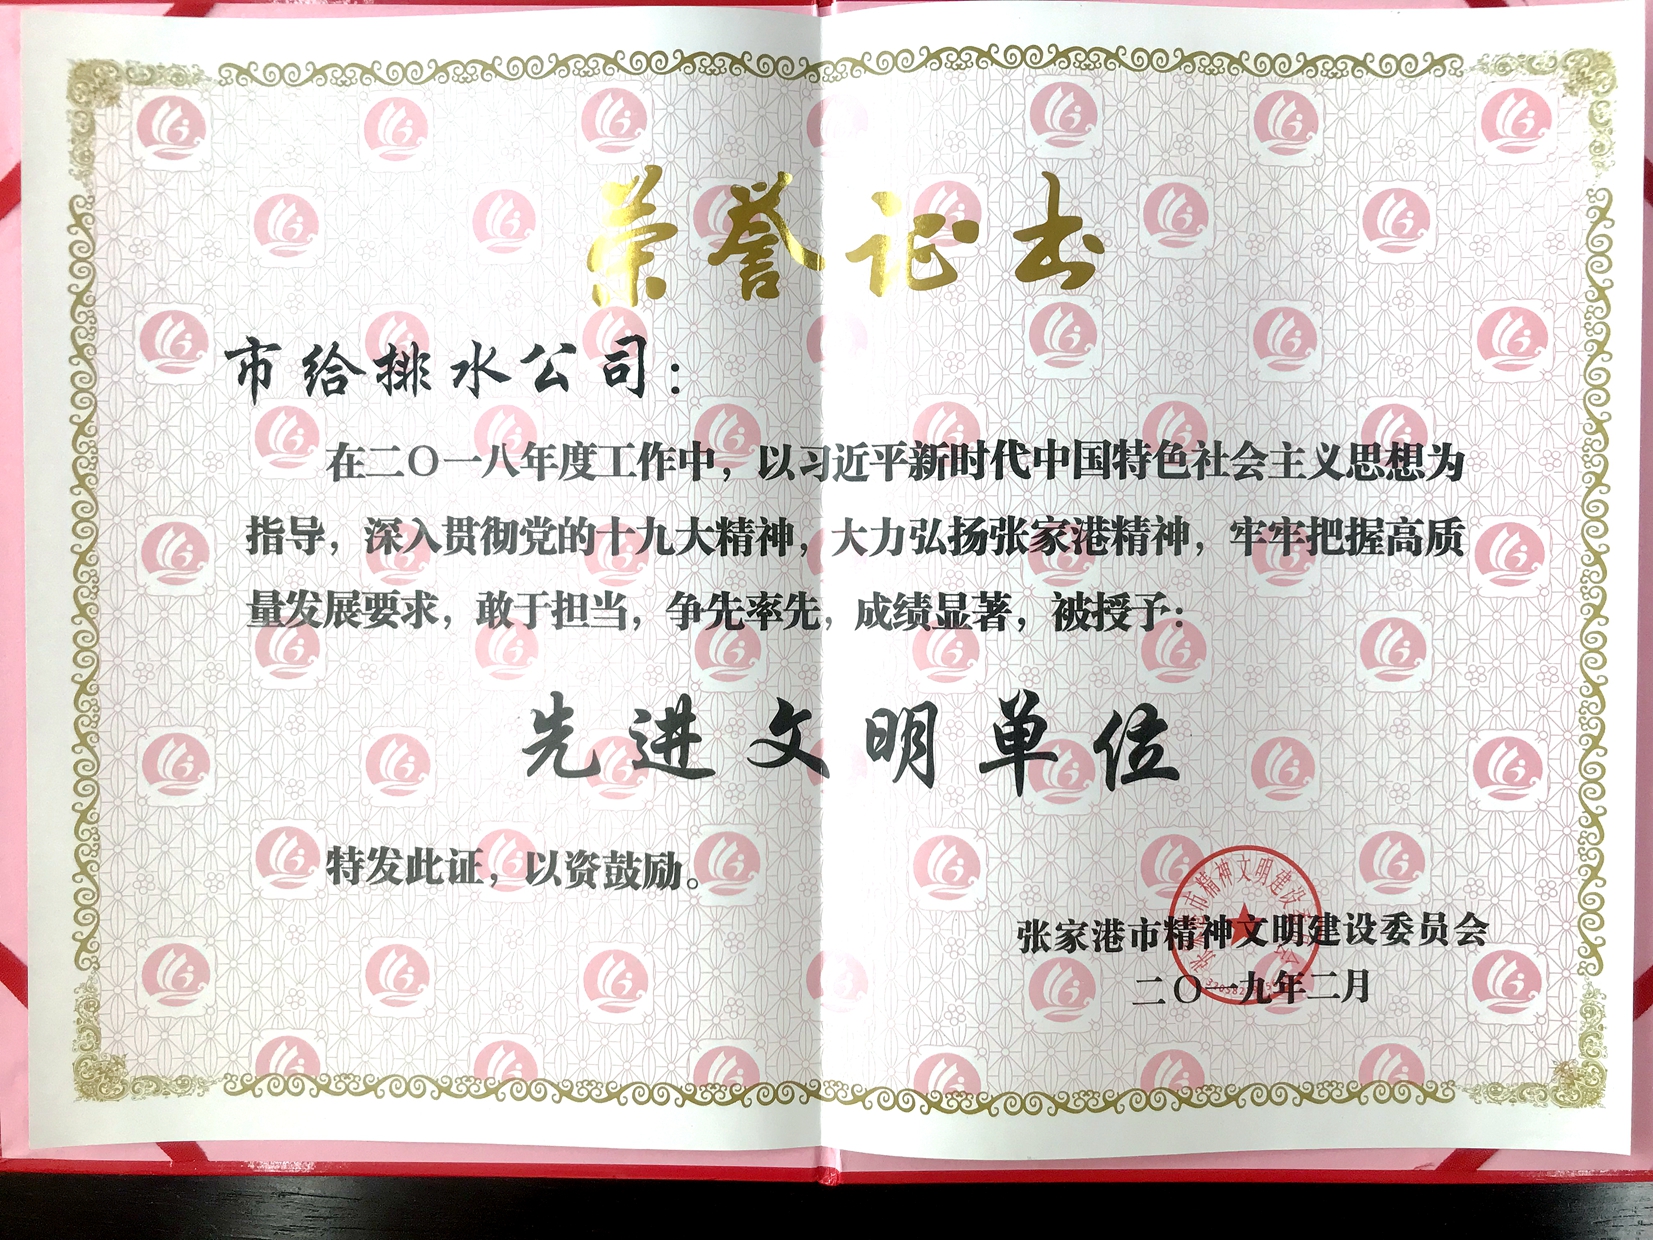 荣誉证书
市给排水公司：
在二〇一八年度工作中，以习近平新时代中国特色社会主义思想为
指导，深入贯彻党的十九大精神，大力弘扬张家港精神，牢牢把握高质
量发展要求，敢于担当，争先率先，成绩显著，被授予：
先进文明单位
特发此证，以资鼓励。
张家港市精神文明建设委员会
二〇一九年二月